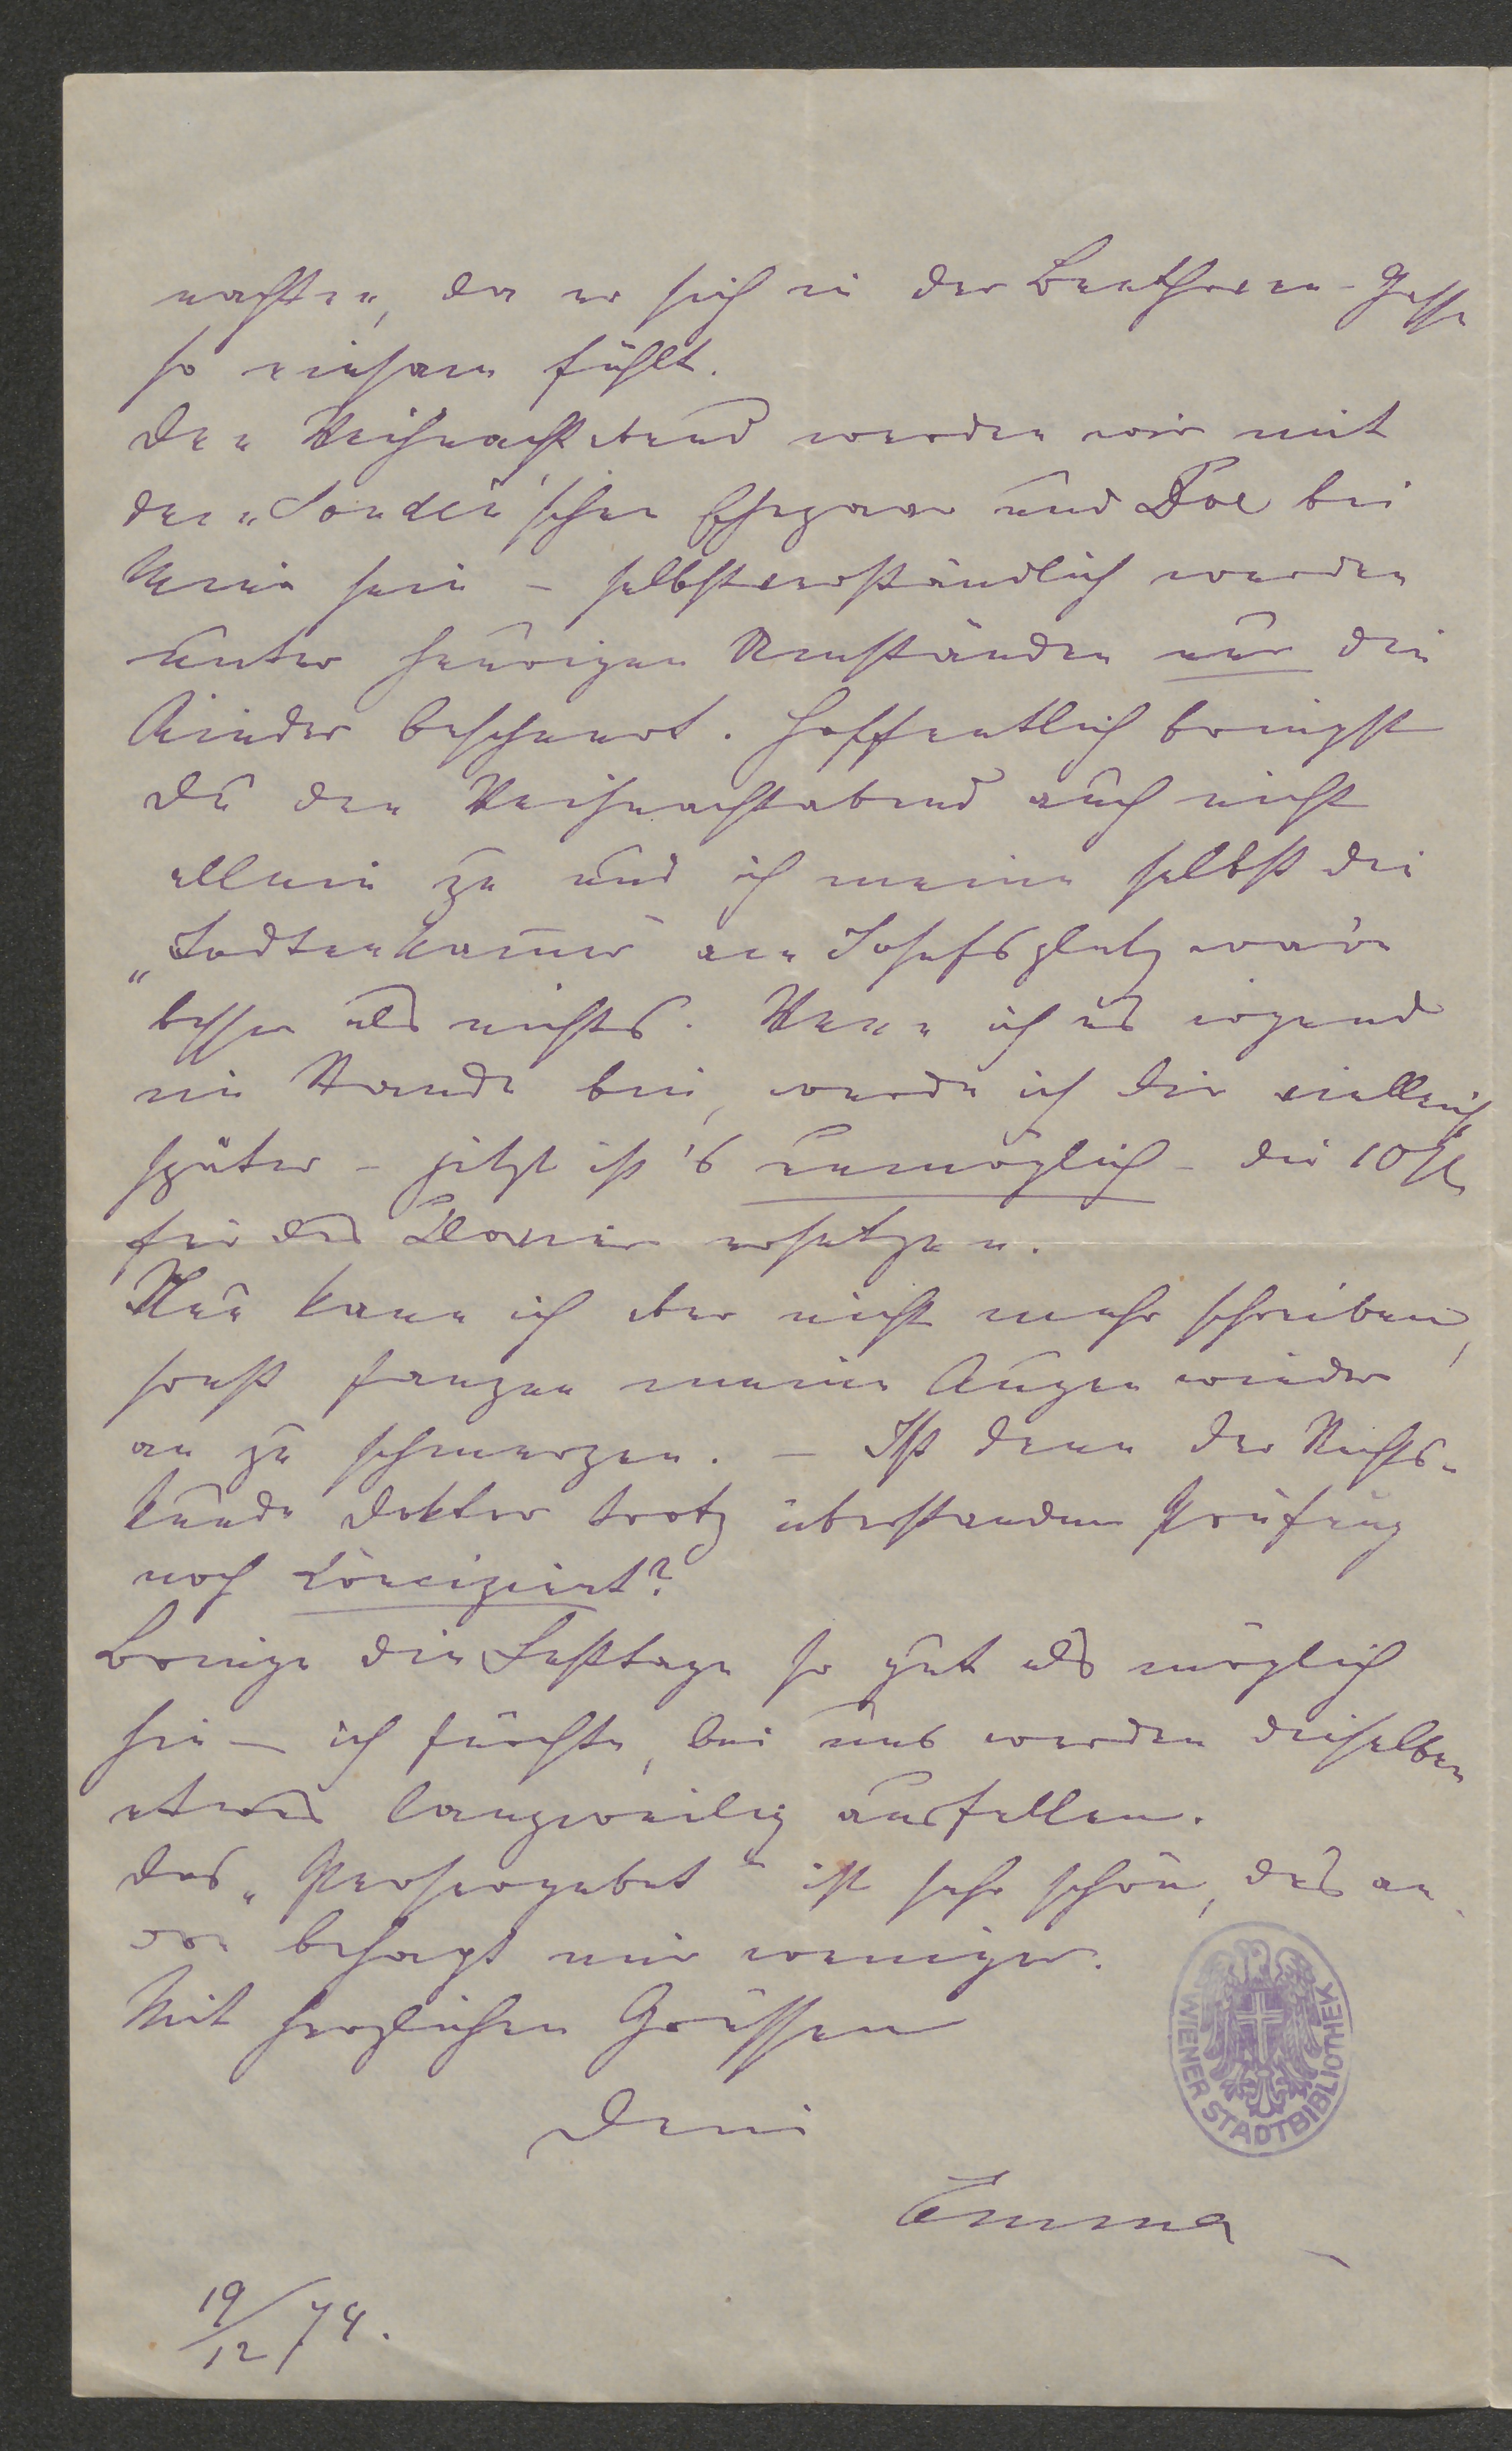 nachten, da er sich in der Beethoven-Gasse
so einsam fühlt.
Den Weihnachtabend werden wir mit
dem „ 'schen Ehepaar und Poe bei
sein – selbstverständlich werden
unter heurigen Umständen nur die
Kinder bescheert. Hoffentlich bringst
Du den Weihnachtabend auch nicht
allein zu und ich meine selbst die
„Todtenkammer am Josefsplatz wäre
besser als nichts. Wenn ich es irgend
im Stande bin, werde ich Dir vielleicht
später – jetzt ist 's unmöglich – die 10 fl
für das Clavier ersetzen.
Nun kann ich aber nicht mehr schreiben,
sonst fangen meine Augen wieder
an zu schmerzen. – Ist denn der Rechts-
kunde Doktor trotz überstandener Prüfung
noch
Bringe die Festtage so gut als möglich
hin – ich fürchte, bei uns werden dieselben
etwas langweilig ausfallen.
Das „Persergebet" ist sehr schön, das an-
dere behagt mir weniger.
Mit herzlichen Grüssen
Deine
Emma
19/12 74.
WIENER STADTBIBLIOTHEK